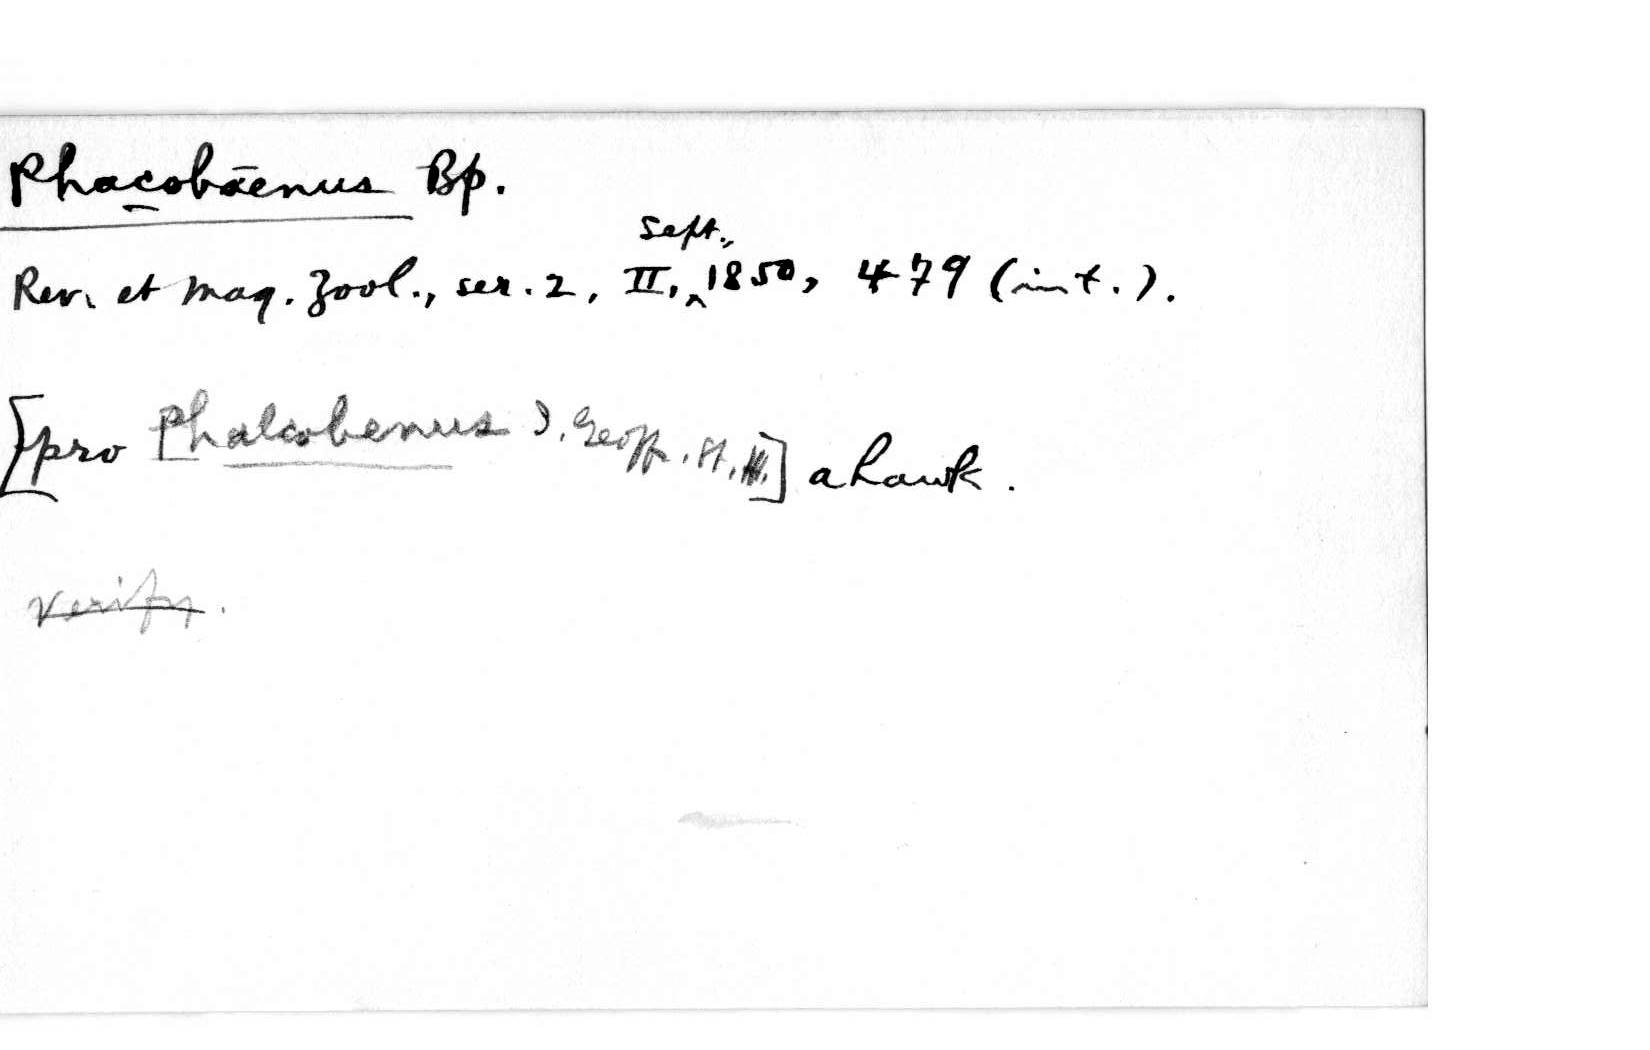 Phacobaenus Bp.
Rev. et Mag. Zool., ser. 2, II, Sept., 1850, 479 (in t.).
[pro Phalcobenus I. Geoffr. St. H.] a hawk.
verify.